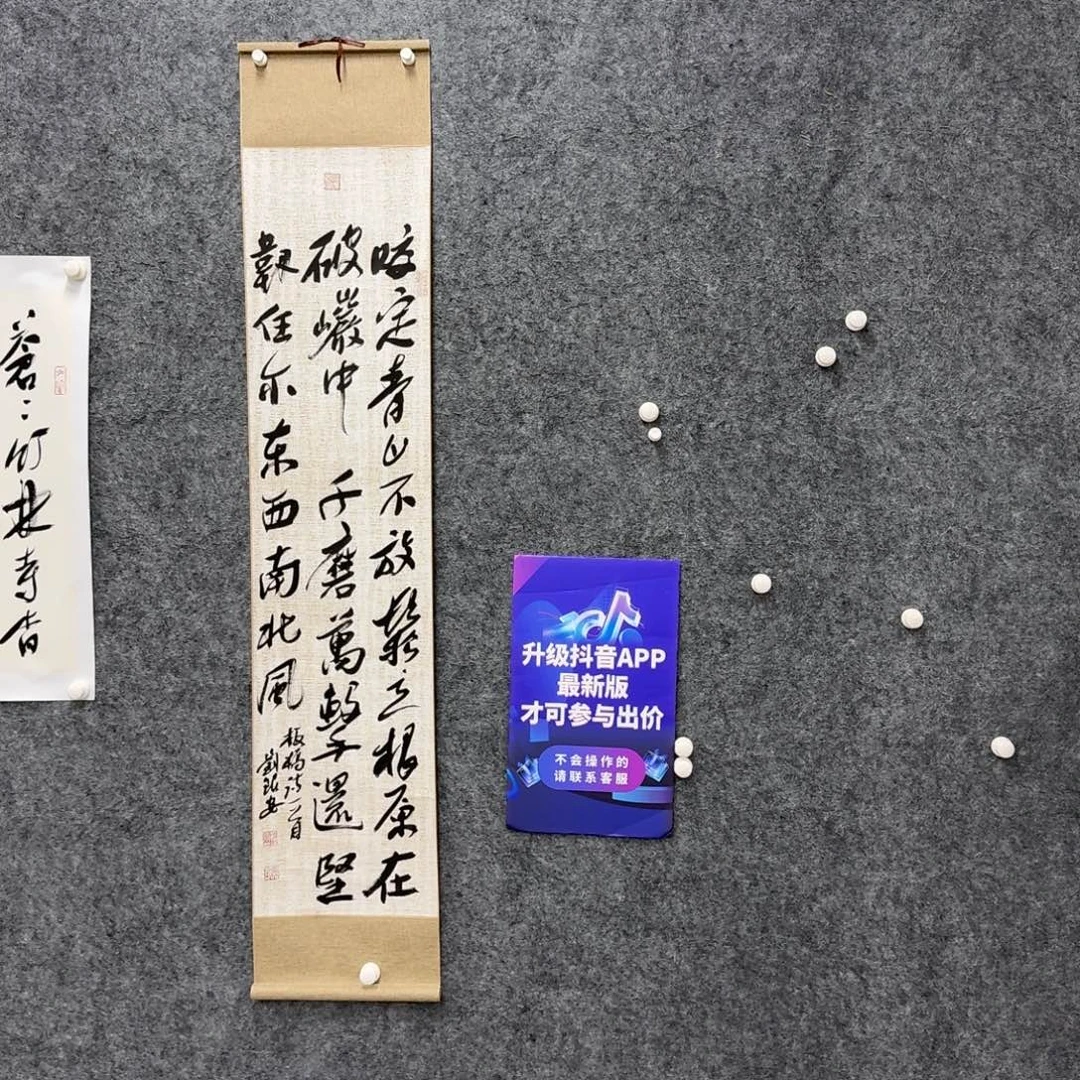 咬定青山不放鬆立根原在
破巖中千磨萬擊還堅
韌任尔东西南北風
板橋诗一首
劉安
蒼〻竹林寺杳
升级抖音APP
最新版
才可参与出价
不会操作的
请联系客服